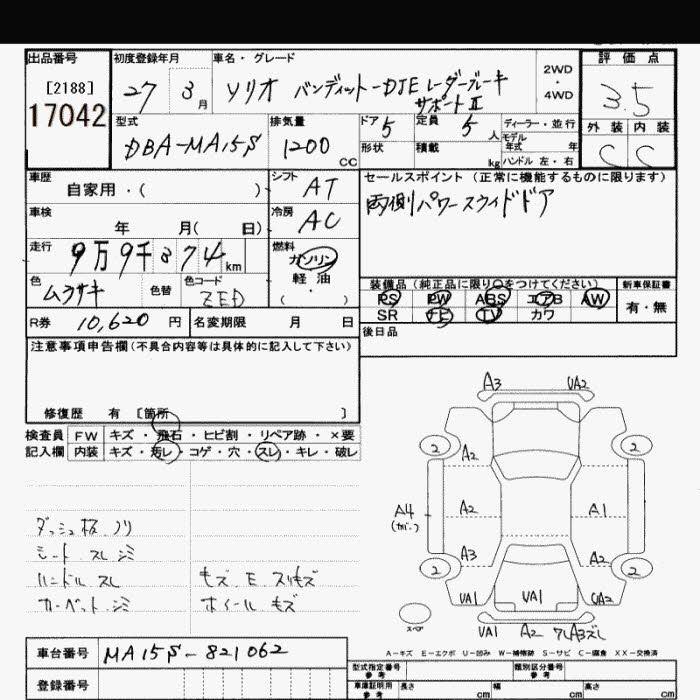 出品番号
[2188]
17042
初度登録年月
27 3月
車名・グレード
ソリオ バンディット-DJE レーダーブレーキ
サポートⅡ
2WD
・
4WD
評価点
3.5
型式
DBA-MA15S
排気量
1200 CC
ドア 5
定員 5 人
ディーラー・並行
モデル年式 年
形状
積載 kg
ハンドル 左・右
外装 内装
C C
車歴
自家用・( )
シフト AT
セールスポイント(正常に機能するものに限ります)
両側パワースライドドア
車検
年 月( 日)
冷房 AC
走行
9万9千874km
燃料
ガソリン
軽油
( ・ )
色
ムラサキ
色替
色コード
ZED
装備品(純正品に限り○をつけてください)
PS PW ABS エアB AW
SR ナビ TV カワ
新車保証書
有・無
R券 10,620 円
名変期限 月 日
後日品
注意事項申告欄(不具合内容等は具体的に記入して下さい)
修復歴 有 [箇所 ]
検査員 FW キズ・飛石・ヒビ割・リペア跡・×要
記入欄 内装 キズ・汚レ・コゲ・穴・スレ・キレ・破レ
ダッシュ板 ノリ
シート スレ シミ
ハンドル スレ
カーペット シミ
キズ E スリキズ
ホイール キズ
A3 UA2
2 2
A2
A4 A2 A1
(カバー)
A3 A2
2 2
UA1 UA1 UA2
スペア
UA1 A2
A-キズ E-エクボ U-凹み W-補修跡 S-サビ C-腐食 XX-交換済
車台番号 MA15S-821062
登録番号
型式指定番号
参考
類別区分番号
参考
車庫証明用
参考
長さ cm 幅 cm 高さ cm